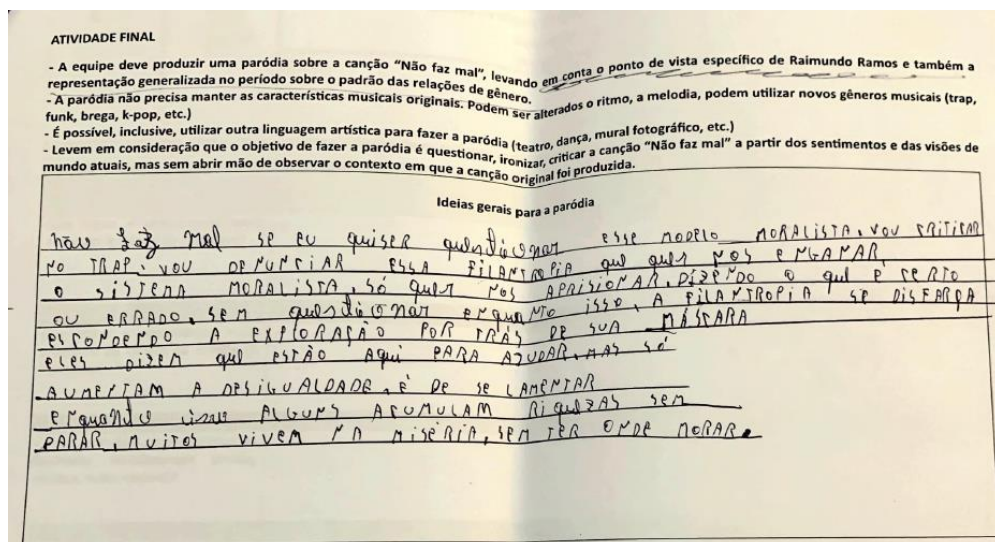 ATIVIDADE FINAL
- A equipe deve produzir uma paródia sobre a canção “Não faz mal”, levando em conta o ponto de vista específico de Raimundo Ramos e também a
representação generalizada no período sobre o padrão das relações de gênero.
- A paródia não precisa manter as características musicais originais. Podem ser alterados o ritmo, a melodia, podem utilizar novos gêneros musicais (trap,
funk, brega, k-pop, etc.)
- É possível, inclusive, utilizar outra linguagem artística para fazer a paródia (teatro, dança, mural fotográfico, etc.)
- Levem em consideração que o objetivo de fazer a paródia é questionar, ironizar, criticar a canção “Não faz mal” a partir dos sentimentos e das visões de
mundo atuais, mas sem abrir mão de observar o contexto em que a canção original foi produzida.
Ideias gerais para a paródia
não faz mal se eu quiser questionar esse modelo moralista, vou criticar
no trap. vou denunciar essa filantropia que quer nos enganar
o sistema moralista, só quer nos aprisionar, dizendo o que e certo
ou errado, sem questionar enquanto isso, a filantropia se disfarça
escondendo a exploração por trás de sua máscara
eles dizem que estão aqui para ajudar, mas só
aumentam a desigualdade, é de se lamentar
enquanto isso alguns acumulam riquezas sem
parar, muitos vivem na miséria, sem ter onde morar.